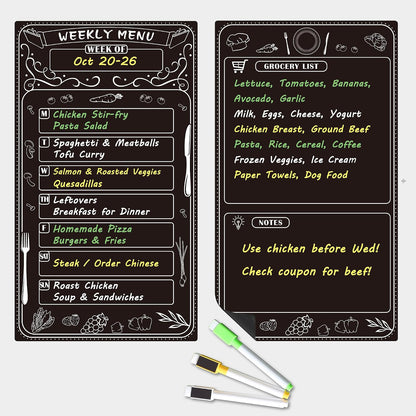 WEEKLY MENU
WEEK OF
Oct 20-26
M Chicken Stir-fry
Pasta Salad
T Spaghetti & Meatballs
Tofu Curry
W Salmon & Roasted Veggies
Quesadillas
TH Leftovers
Breakfast for Dinner
F Homemade Pizza
Burgers & Fries
SU Steak / Order Chinese
SUN Roast Chicken
Soup & Sandwiches
GROCERY LIST
Lettuce, Tomatoes, Bananas,
Avocado, Garlic
Milk, Eggs, Cheese, Yogurt
Chicken Breast, Ground Beef
Pasta, Rice, Cereal, Coffee
Frozen Veggies, Ice Cream
Paper Towels, Dog Food
NOTES
Use chicken before Wed!
Check coupon for beef!